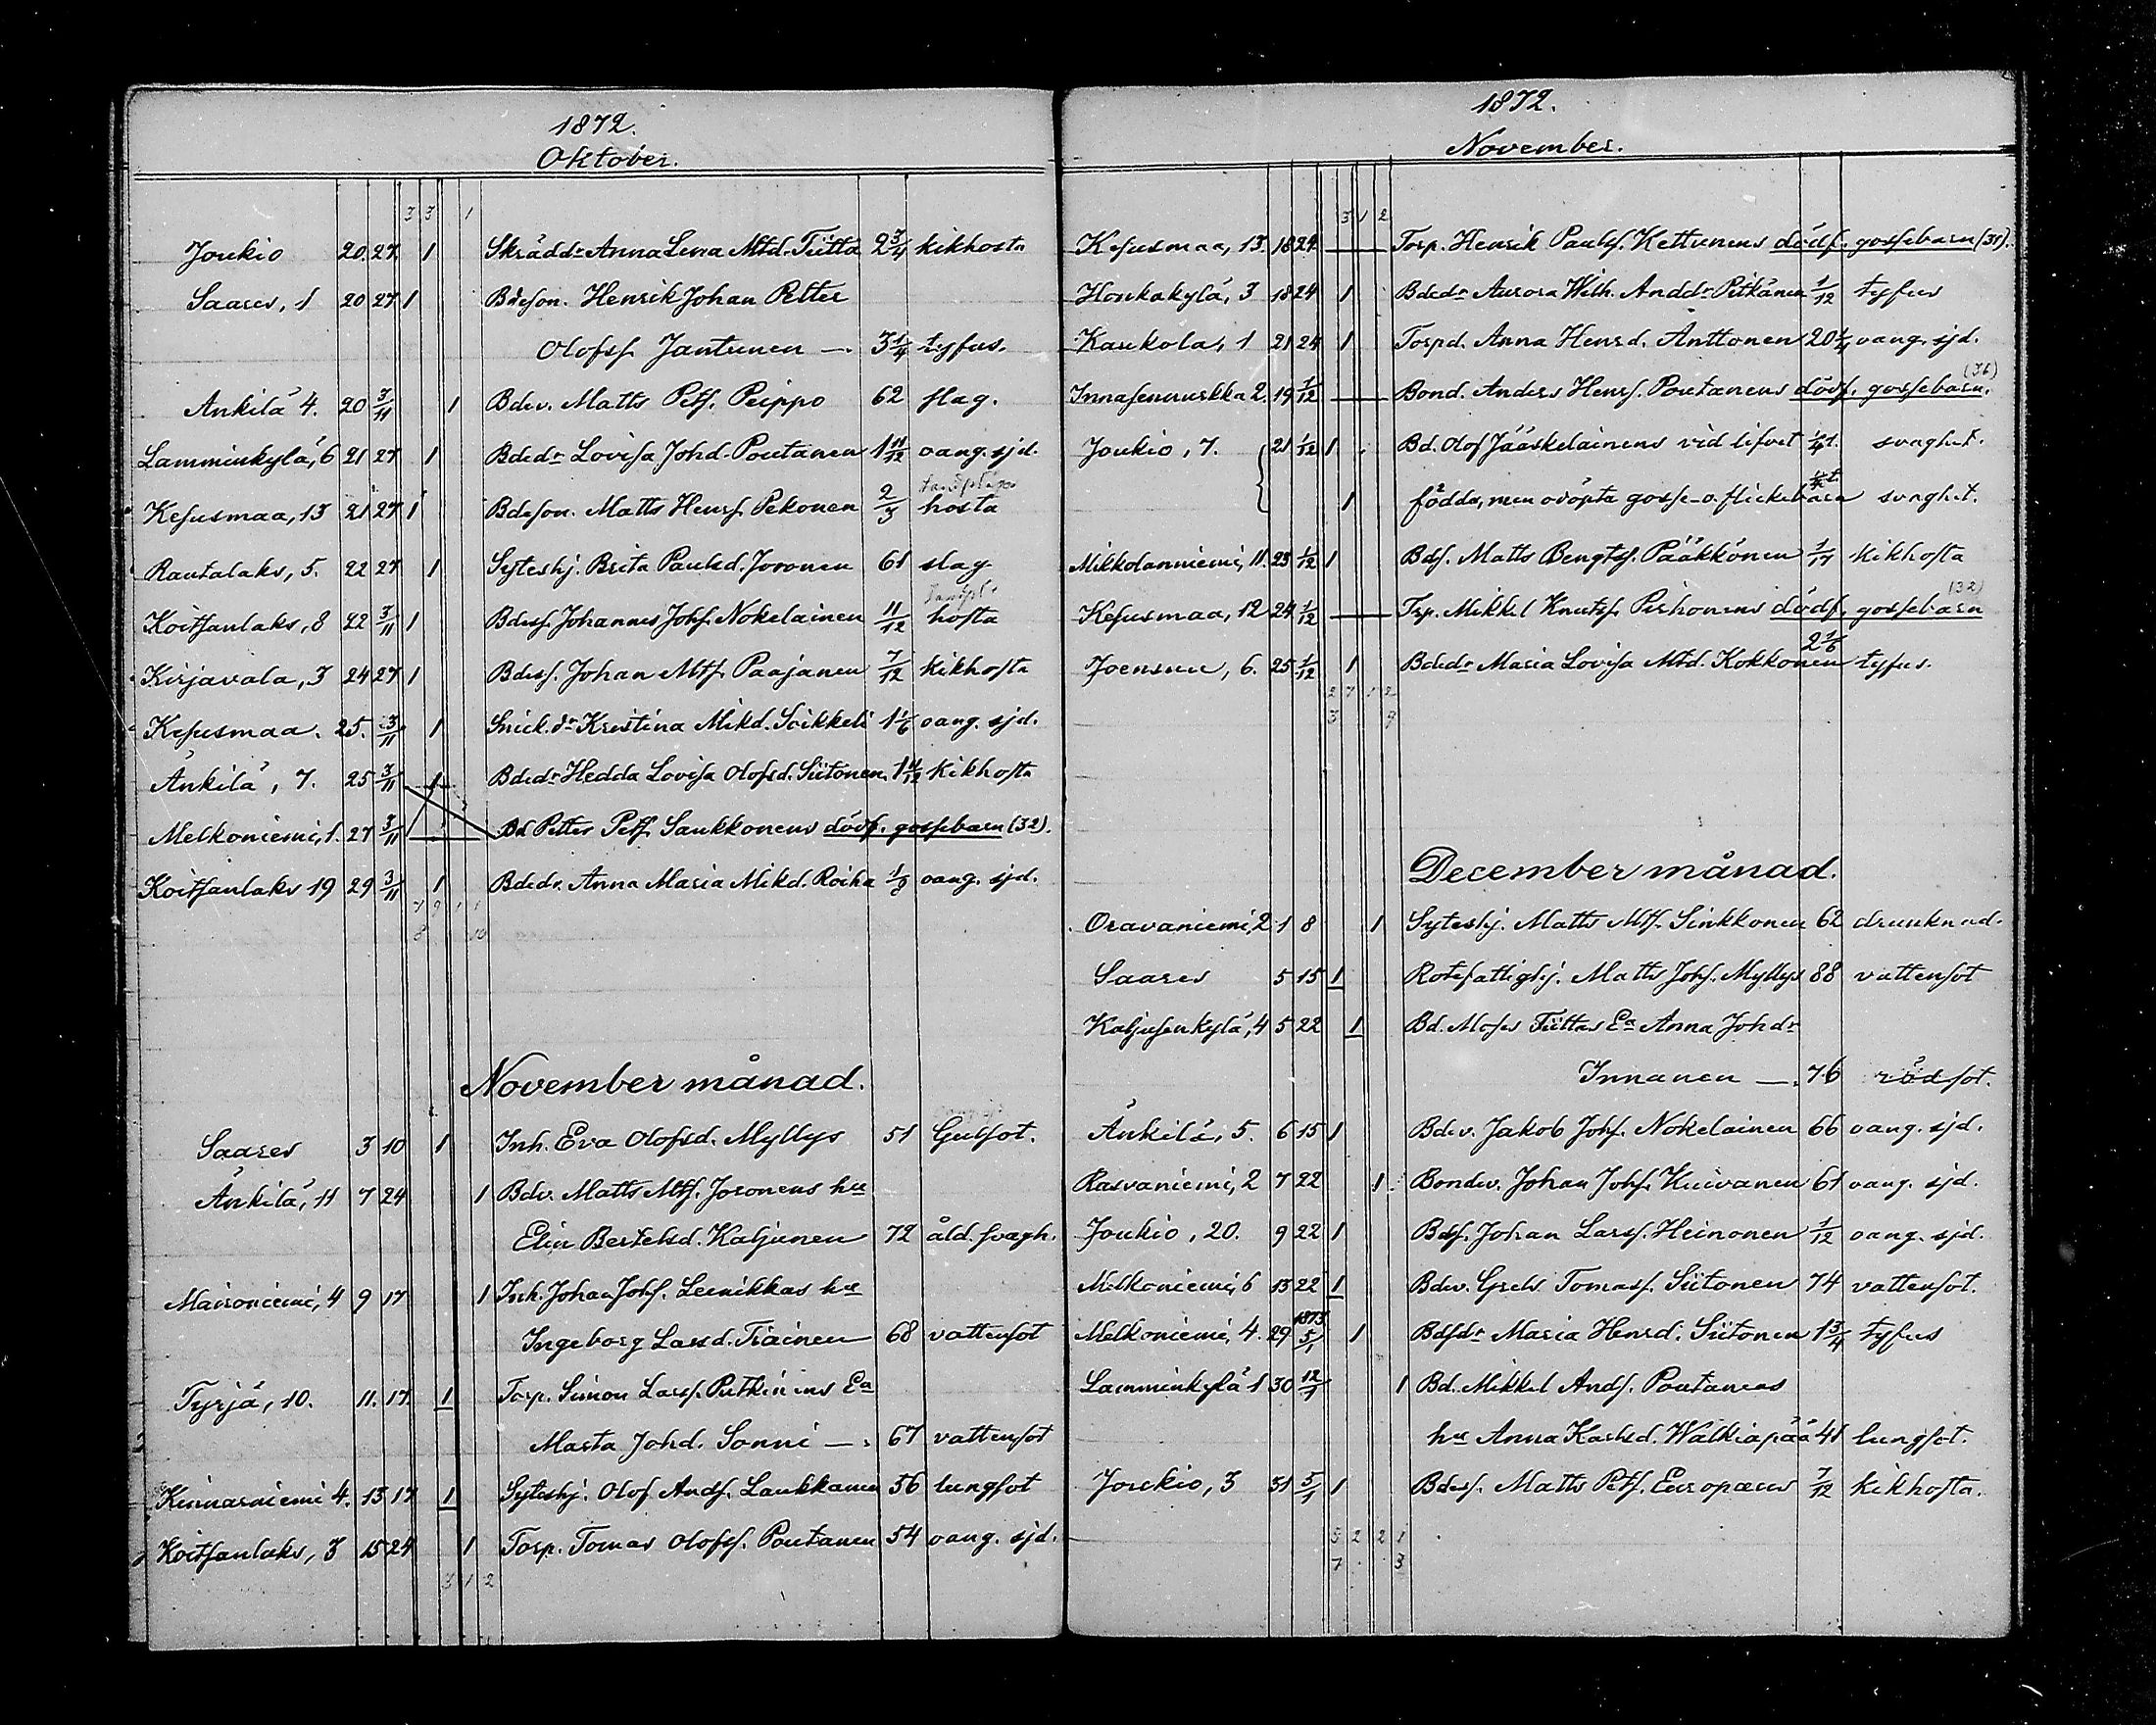 1872.
Oktober.
3 3 1
Joukio 20 27 1 Skräddr Anna Lena Mtd. Tiitta 2 3/4 kikhosta
Saares, 1 20 27 1 Bdeson. Henrik Johan Petter
Olofss. Jantunen — 3 1/4 tyfus.
Änkilä 4. 20 3/11 1 Bdev. Matts Petss. Peippo 62 slag.
Lamminkylä, 6 21 27 1 Bdedr Lovisa Johd. Poutanen 1 11/12 oang. sjd.
Kesusmaa, 13 21 27 1 Bdeson. Matts Henrs. Pekonen 2/3 hosta
Rautalaks, 5. 22 27 1 Syteshj. Brita Paulsd. Joronen 61 slag
Koitsanlaks, 8 22 3/11 1 Bdess. Johannes Johs. Nokelainen 11/12 hosta
Kirjavala, 3 24 27 1 Bdess. Johan Mtss. Paajanen 7/12 Kikhosta
Kesusmaa. 25. 3/11 1 Snick. dr Kristina Mikd. Soikkeli 1 1/6 oang. sjd.
Änkilä, 7. 25 3/11 1 Bdedr Hedda Lovisa Olofsd. Siitonen 1 11/12 Kikhosta
Melkoniemi, 1. 27 3/11 — Bd Petter Petss. Saukkonens dödf. gossebarn (32).
Koitsanlaks 19 29 3/11 1 Bdedr. Anna Maria Mikd. Roiha 1/3 oang. sjd.
7 9 1 1
8 10
November månad.
Saares 3 10 1 Inh. Eva Olofsd. Myllys 51 Gulsot.
Änkilä, 11 7 24 1 Bdv. Matts Mtss. Joronens hu
Elin Bertelsd. Kaljunen 72 åld. svagh.
Maironiemi, 4 9 17 1 Inh. Johan Johs. Leinikkas hu
Ingeborg Larsd. Tiainen 68 vattensot
Tyrjä, 10. 11. 17. 1 Torp. Simon Larss. Putkinens Ea
Marta Johd. Sonni —. 67 vattensot
Kinnarniemi 4. 13 17 1 Syteshj. Olof Ands. Laukkanen 56 lungsot
Koitsanlaks, 3 15 24 1 Torp. Tomas Olofss. Poutanen 54 oang. sjd.
3 1 2
1872.
November.
3 1 2
Kesusmaa, 13. 18 24 — Torp. Henrik Paulss. Kettunens dödf. gossebarn (31).
Honkakylä, 3 18 24 1 Bdedr Aurora Wilh. Anddr Pitkänen 1/12 tyfus
Kaukola, 1 21 24 1 Torpd. Anna Henrd. Anttonen 20 1/4 oang. sjd.
Innasennurkka 2. 19 1/12 — Bond. Anders Henrs. Poutanens dödf. gossebarn. (36)
Joukio, 7. 21 1/12 1 Bd. Olof Jääskelainens vid lifvet 1/4 t. svaghet.
1 födda, men odöpta gosse- o. flickebarn svaghet.
Mikkolanniemi, 11. 23 1/12 1 Bds. Matts Bengtss. Pääkkönen kikhosta
Kesusmaa, 12 24 1/12 — Trp. Mikkel Knutss. Pirhonens dödf. gossebarn (32)
Joensuu, 6. 25 1/12 1 Bdedr Maria Lovisa Mtd. Kokkonen 2 1/6 tyfus.
2 7 1 2
3 9
December månad.
Oravaniemi, 2 1 8 1 Syteshj. Matts Mtss. Sinkkonen 62 drunknad.
Saares 5 15 1 Rotefattighj. Matts Johs. Myllys 88 vattensot
Kaljusenkylä, 4 5 22 1 Bd. Moses Tiittas Ea Anna Johdr
Innanen —. 76 rödsot.
Änkilä, 5. 6 15 1 Bdev. Jakob Johs. Nokelainen 66 oang. sjd.
Rasvaniemi, 2 7 22 1 Bondev. Johan Johs. Kuivanen 61 oang. sjd.
Joukio, 20. 9 22 1 Bdss. Johan Larss. Heinonen 1/12 oang. sjd.
Melkoniemi, 6 13 22 1 Bdev. Grels Tomass. Siitonen 74 vattensot.
Melkoniemi, 4. 29 1873 5/1 1 Bdsdr Maria Henrd. Siitonen 1 3/4 tyfus
Lamminkylä 1 30 12/1 1 Bd. Mikkel Ands. Poutanens
hu Anna Karlsd. Wälkiapää 41 lungsot.
Joukio, 3 31 5/1 1 Bdess. Matts Petss. Europaeus 7/12 kikhosta.
5 2 2 1
7 3